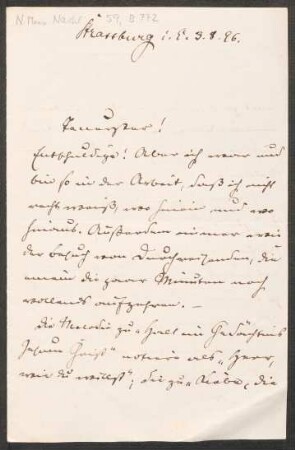 N. Mus. Nachl. 59, B 772
Strassburg i. E. 3. 8. 96.
Teuerster!
Entschuldige! Aber ich war und
bin so in der Arbeit, daß ich nicht
recht weiß, wo hinein und wo
hinaus. Außerdem immer wieder
der Besuch von Durchreisenden, die
einem die paar Minuten noch
vollends aufzehren. —
Die Melodie zu „Halt im Gedächtnis
Jesum Christ" notiere als „Herr,
wie du willst"; die zu „Liebe, die